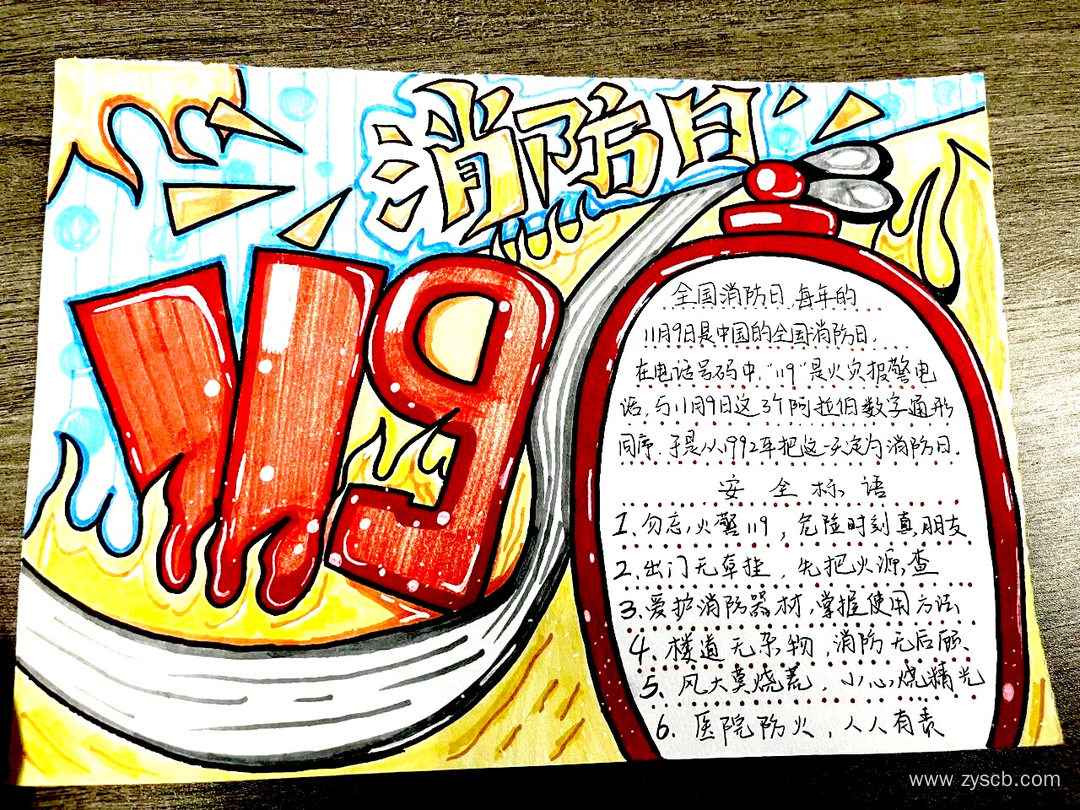 消防日
119
全国消防日,每年的
11月9日是中国的全国消防日.
在电话号码中,"119"是火灾报警电
话,与11月9日这3个阿拉伯数字通形
同序.于是从1992年把这一天定为消防日.
安全标语
1.勿忘火警119,危险时刻真朋友
2.出门无牵挂,先把火源查
3.爱护消防器材,掌握使用方法
4.楼道无杂物,消防无后顾.
5.风大莫烧荒,小心烧精光
6.医院防火,人人有责
www.zyscb.com